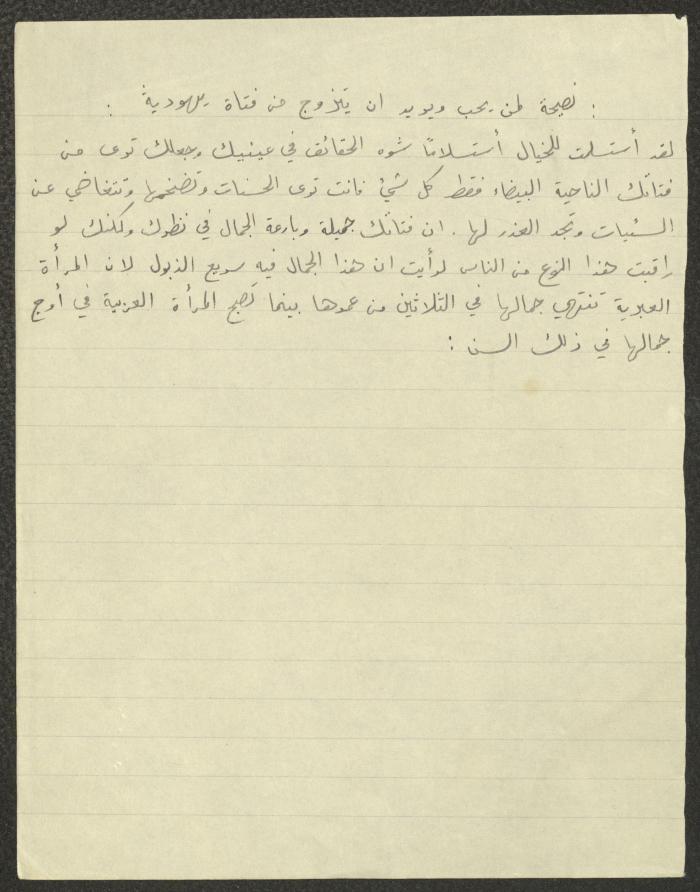 : نصيحة لمن يحب ويريد ان يتزوج من فتاة يهودية :
لقد أستسلمت للخيال أستسلامًا شوه الحقائق في عينيك وجعلك ترى من
فتاتك الناحية البيضاء فقط كل شيئ فانت ترى الحسنات وتضخمها وتتغاضي عن
السئيات وتجد العذر لها . ان فتاتك جميلة وبارعة الجمال في نظرك ولكنك لو
راقبت هذا النوع من الناس لرأيت ان هذا الجمال فيه سريع الذبول لان المرأة
العبرية تنتهي جمالها في الثلاثين من عمرها بينما تصبح المرأة العربية في أوج
جمالها في ذلك السن :